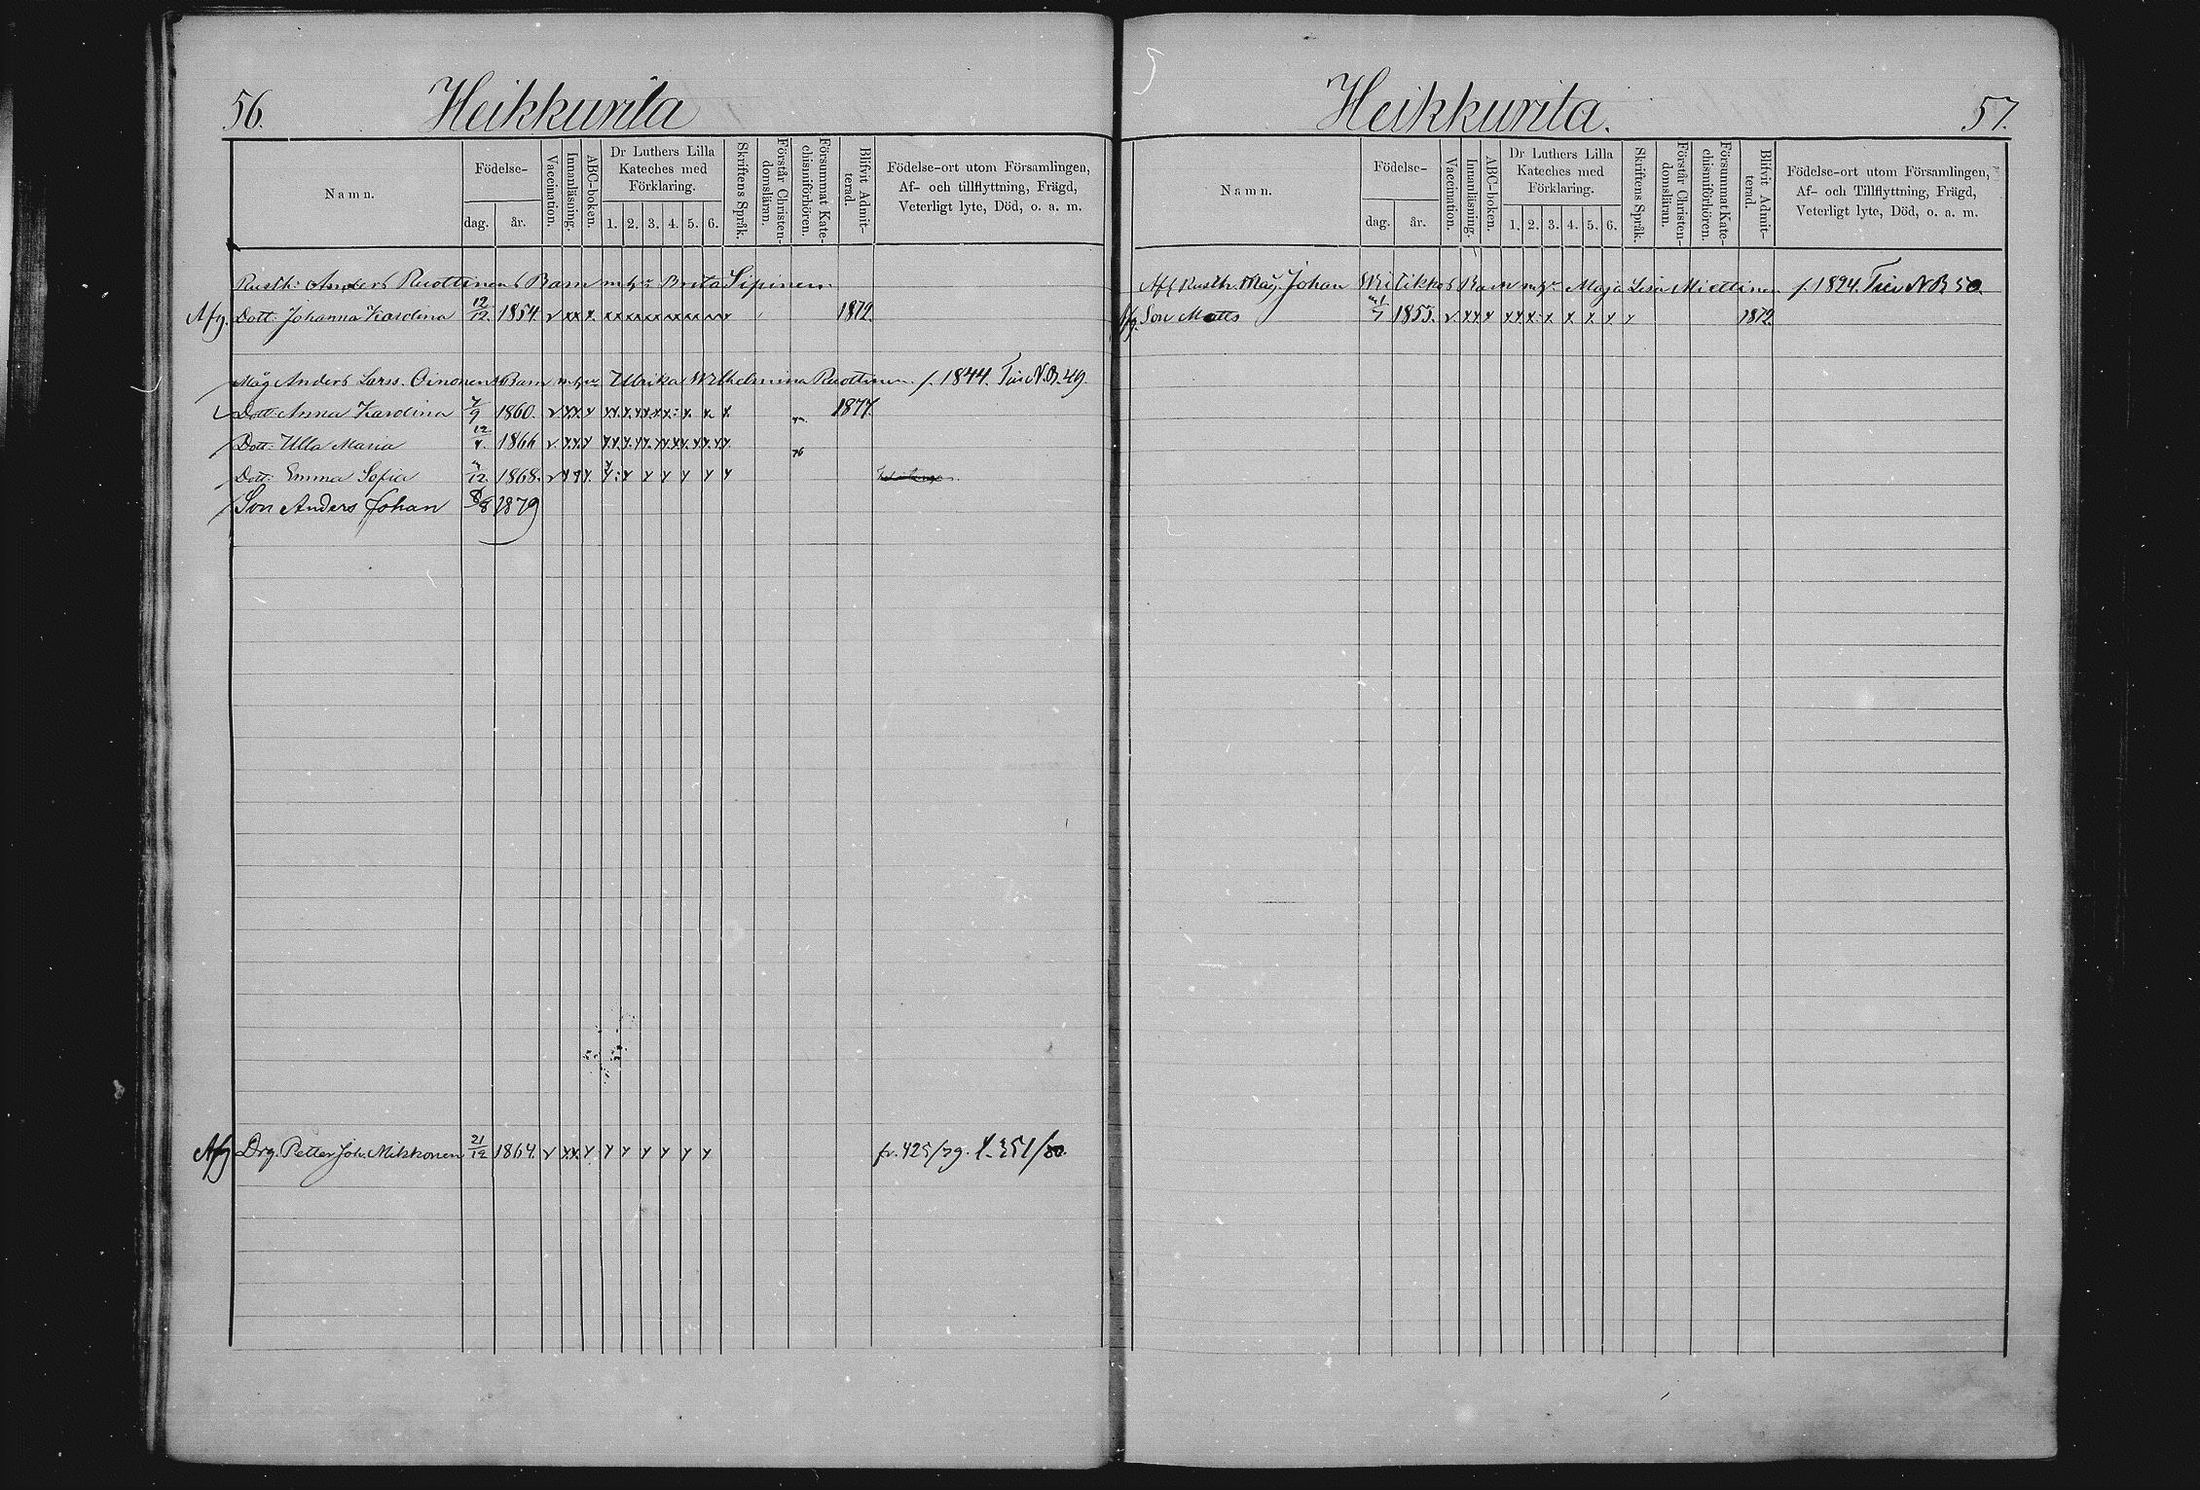 56.
Heikkurila
Namn.
Födelse-
dag.
år.
Vaccination.
Innanläsning.
ABC-boken.
Dr Luthers Lilla
Kateches med
Förklaring.
1. 2. 3. 4. 5. 6.
Skriftens Språk.
Förstår Christen-
domsläran.
Försummat Kate-
chismiförhören.
Blifvit Admit-
terad.
Födelse-ort utom Församlingen,
Af- och tillflyttning, Frägd,
Veterligt lyte, Död, o. a. m.
Rusth: Anders Ruottinens Barn m. h. Brita Sipinen
Afg. Dott. Johanna Karolina 12/12 1854. v xx x. xx xx xx xx xx xx x 1872.
Måg Anders Larss. Oinonens Barn m. h. Ulrika Wilhelmina Ruottinen f. 1844. Fui N.B. 49.
Dott: Anna Karolina 7/9 1860. 1877.
Dott: Ulla Maria 1866 76
Dott: Emma Sofia 1868.
Son Anders Johan 8/8 1879
Afg Drg. Petter Joh. Mikkonen 21/12 1864. v xx x x x x x x x fr. 425/79. t. 351/80.
Heikkurila.
57.
Namn.
Födelse-
dag.
år.
Vaccination.
Innanläsning.
ABC-boken.
Dr Luthers Lilla
Kateches med
Förklaring.
1. 2. 3. 4. 5. 6.
Skriftens Språk.
Förstår Christen-
domsläran.
Försummat Kate-
chismiförhören.
Blifvit Admit-
terad.
Födelse-ort utom Församlingen,
Af- och Tillflyttning, Frägd,
Veterligt lyte, Död, o. a. m.
Afl Rusth. Måg. Johan Barn m. h. Maja Lisa Miettinen f. 1824. N B 50.
Afg. Son Matts 1855. 1872.